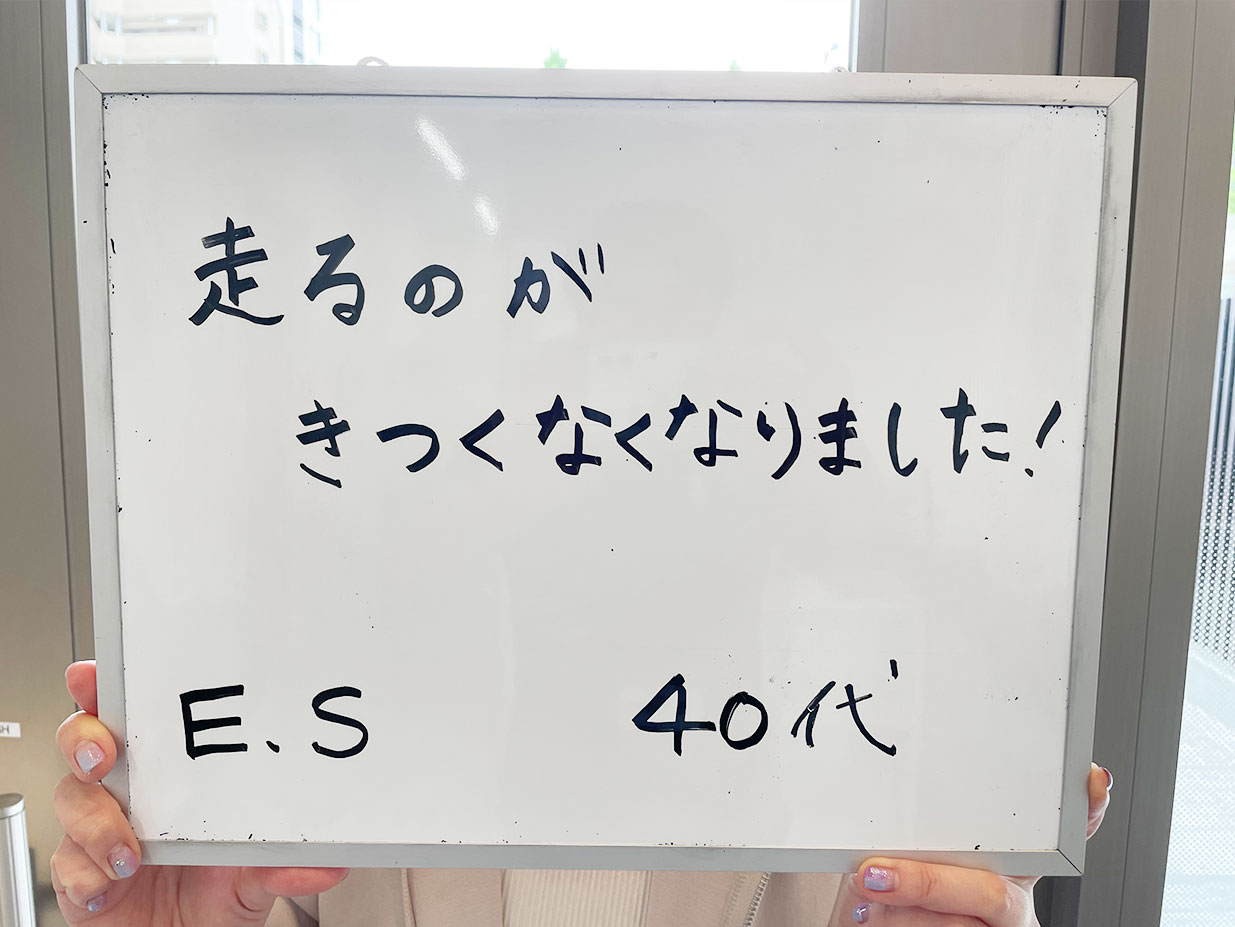 走るのが
きつくなくなりました!
E.S 40代